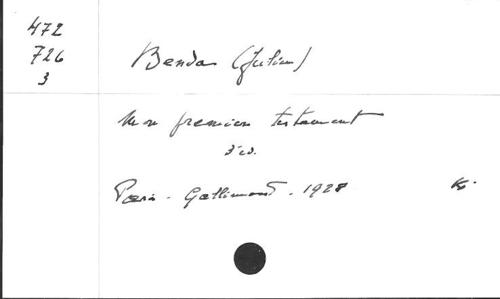 472
726
3
Benda (Julien)
Mon premier testament
3e ed.
Paris - Gallimard - 1928